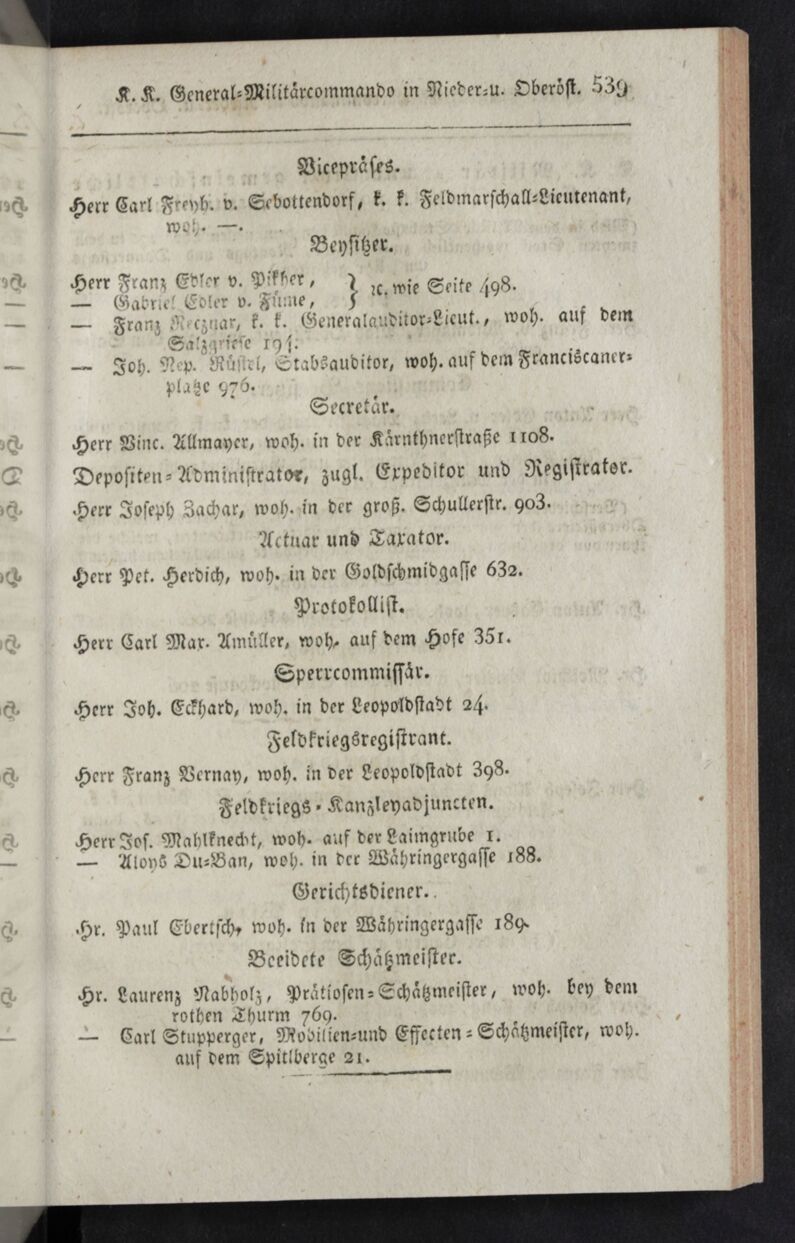 K. K. General-Militärcommando in Nieder-u. Oberöst. 539
Vicepräses.
Herr Carl Freyh. v. Sebottendorf, k. k. Feldmarschall-Lieutenant,
woh. —.
Beysitzer.
Herr Franz Edler v. Pikher, } ꝛc. wie Seite 498.
— Gabriel Edler v. Füme,
— Franz Recznar, k. k. Generalauditor-Lieut., woh. auf dem
Salzgriese
— Joh. Nep. Rüstel, Stabsauditor, woh. auf dem Franciscaner-
platze 976.
Secretär.
Herr Vinc. Allmayer, woh. in der Kärnthnerstraße 1108.
Depositen-Administrator, zugl. Expeditor und Registrator.
Herr Joseph Zachar, woh. in der groß. Schullerstr. 903.
Actuar und Taxator.
Herr Pet. Herdich, woh. in der Goldschmidgasse 632.
Protokollist.
Herr Carl Max. Amüller, woh. auf dem Hofe 351.
Sperrcommissär.
Herr Joh. Eckhard, woh. in der Leopoldstadt 24.
Feldkriegsregistrant.
Herr Franz Vernay, woh. in der Leopoldstadt 398.
Feldkriegs-Kanzleyadjuncten.
Herr Jos. Mahlknecht, woh. auf der Laimgrube 1.
— Aloys Du-Ban, woh. in der Währingergasse 188.
Gerichtsdiener.
Hr. Paul Ebertsch, woh. in der Währingergasse 189.
Beeidete Schätzmeister.
Hr. Laurenz Nabholz, Prätiosen-Schätzmeister, woh. bey dem
rothen Thurm 769.
— Carl Stupperger, Mobilien-und Effecten-Schätzmeister, woh.
auf dem Spitlberge 21.